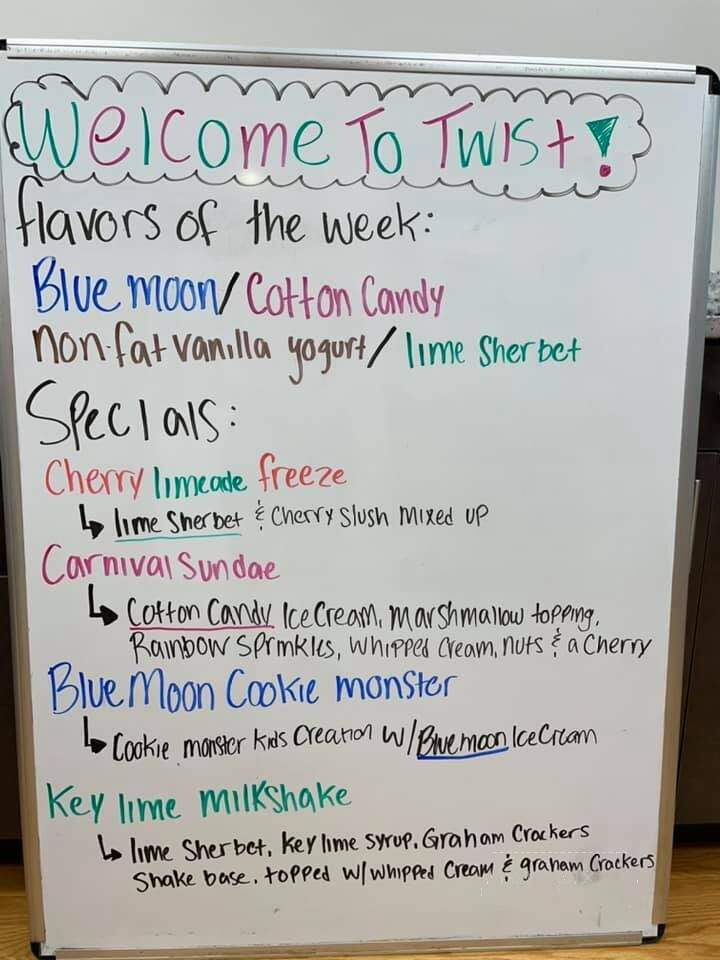 Welcome To Twist!
flavors of the week:
Blue moon/Cotton Candy
non-fat vanilla yogurt/lime Sherbet
Specials:
Cherry limeade freeze
↳ lime Sherbet & Cherry Slush Mixed up
Carnival Sundae
↳ Cotton Candy Ice Cream, marshmallow topping,
Rainbow Sprinkles, whipped Cream, nuts & a Cherry
Blue Moon Cookie monster
↳ Cookie monster kids Creation w/ Blue moon Ice Cream
Key lime milkshake
↳ lime Sherbet, key lime syrup, Graham Crackers
Shake base, topped w/ whipped Cream & graham Crackers